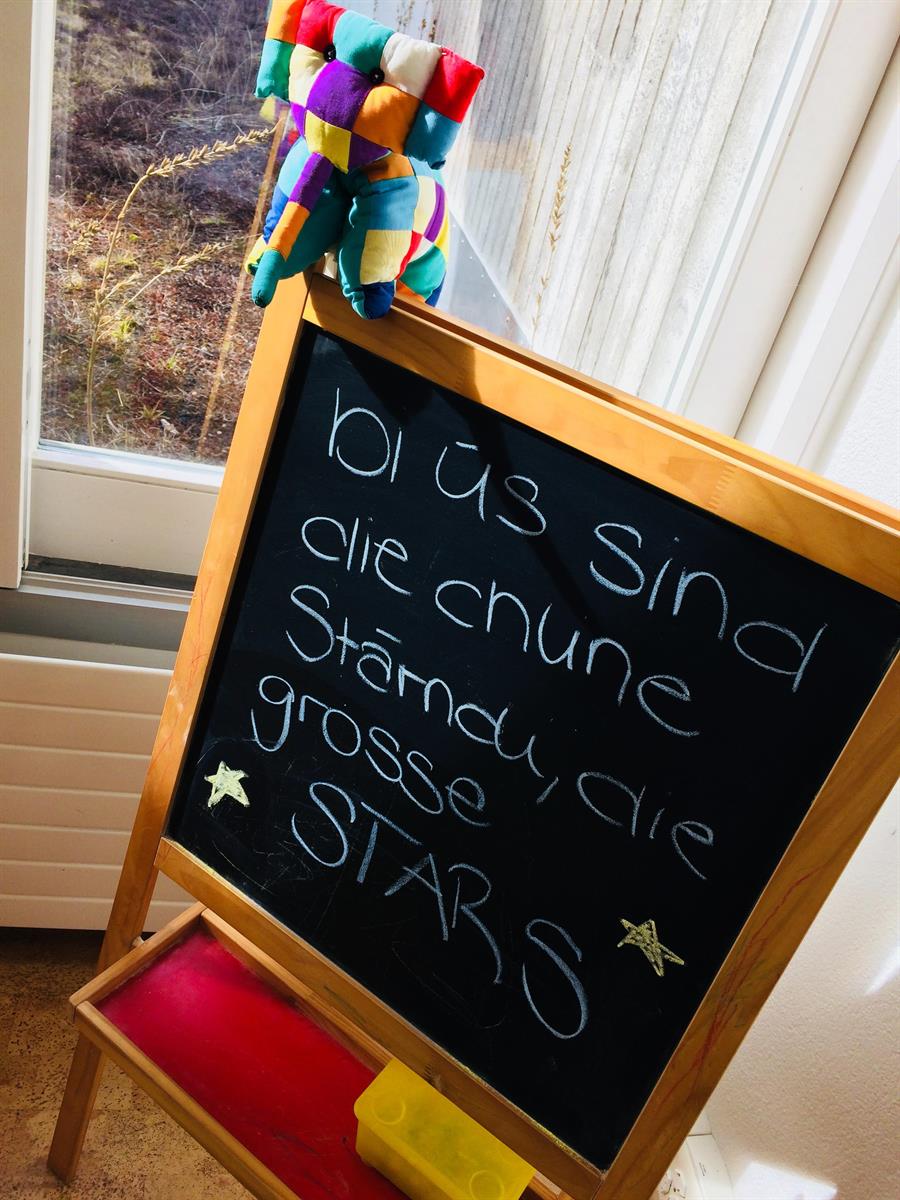 bi üs sind
die chline
Stärndu, die
grosse
STARS